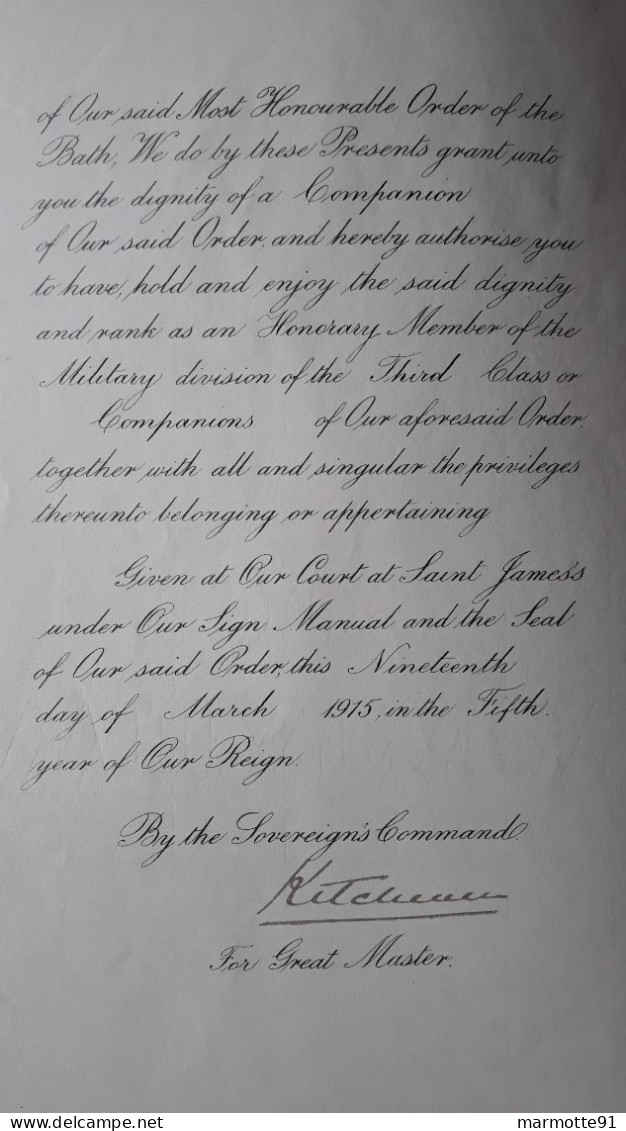 of Our said Most Honourable Order of the
Bath, We do by these Presents grant unto
you the dignity of a Companion
of Our said Order, and hereby authorise you
to have, hold and enjoy the said dignity
and rank as an Honorary Member of the
Military division of the Third Class or
Companions of Our aforesaid Order,
together with all and singular the privileges
thereunto belonging or appertaining
Given at Our Court at Saint James's
under Our Sign Manual and the Seal
of Our said Order, this Nineteenth
day of March 1915, in the Fifth.
year of Our Reign.
By the Sovereign's Command.
Kitchener
For Great Master.
marmotte91